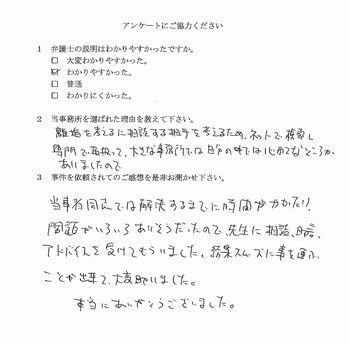 アンケートにご協力ください
1 弁護士の説明はわかりやすかったですか。
□ 大変わかりやすかった。
☑ わかりやすかった。
□ 普通
□ わかりにくかった。
2 当事務所を選ばれた理由を教えて下さい。
離婚を考えるに相談する相手を考えるため、ネットで検索し
専門で再扱って、大きな事務所では自分の中では心配なところが
ありましたので
3 事件を依頼されてのご感想を是非お聞かせ下さい。
当事者同志では解決するまでに時間がかかたり、
問題がいろいろありそうだったので、先生に相談、助言、
アドバイスを受けてもらいました。結果スムーズに事を運ぶ
ことが出来て、大変助いました。
本当にありがとうございました。